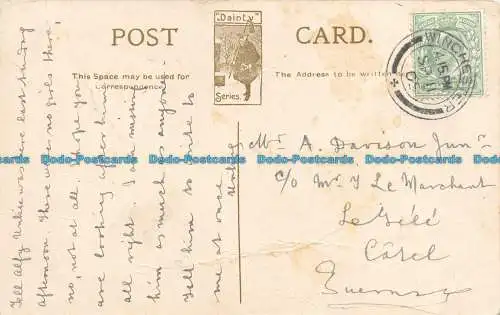 POST CARD.
"Dainty"
Series.
This Space may be used for
Correspondence.
The Address to be written
WINCHESTER
Tell Alfy Unkie was here last Sunday
afternoon. There were no girls there,
no, not at all. I hope you
are looking after him
all right. I am missing
him as much as anyone.
Tell him to write to
me at once
Mr A. Davison Junr
c/o Mr J Le Marchant
Le Gélé
Câtel
Guernsey
Dodo-Postcards Dodo-Postcards Dodo-Postcards Dodo-Postcards Dodo-Postcards